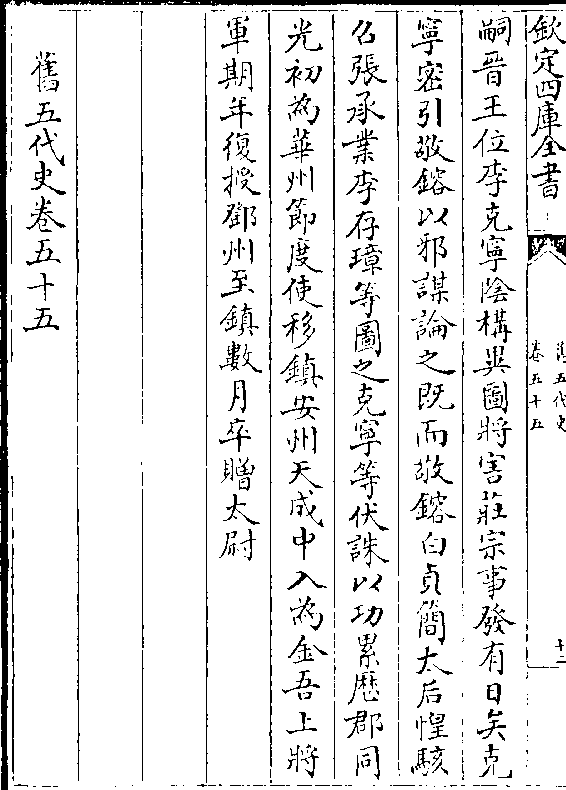 欽定四庫全書
舊五代史
卷五十五
十二
嗣晉王位李克寧陰構異圖將害莊宗事發有日矣克
寧密引敬鎔以邪謀論之既而敬鎔白貞簡太后惶駭
召張承業李存璋等圖之克寧等伏誅以功累歴郡同
光初為華州節度使移鎮安州天成中入為金吾上將
軍期年復授鄧州至鎮數月卒贈太尉
舊五代史卷五十五